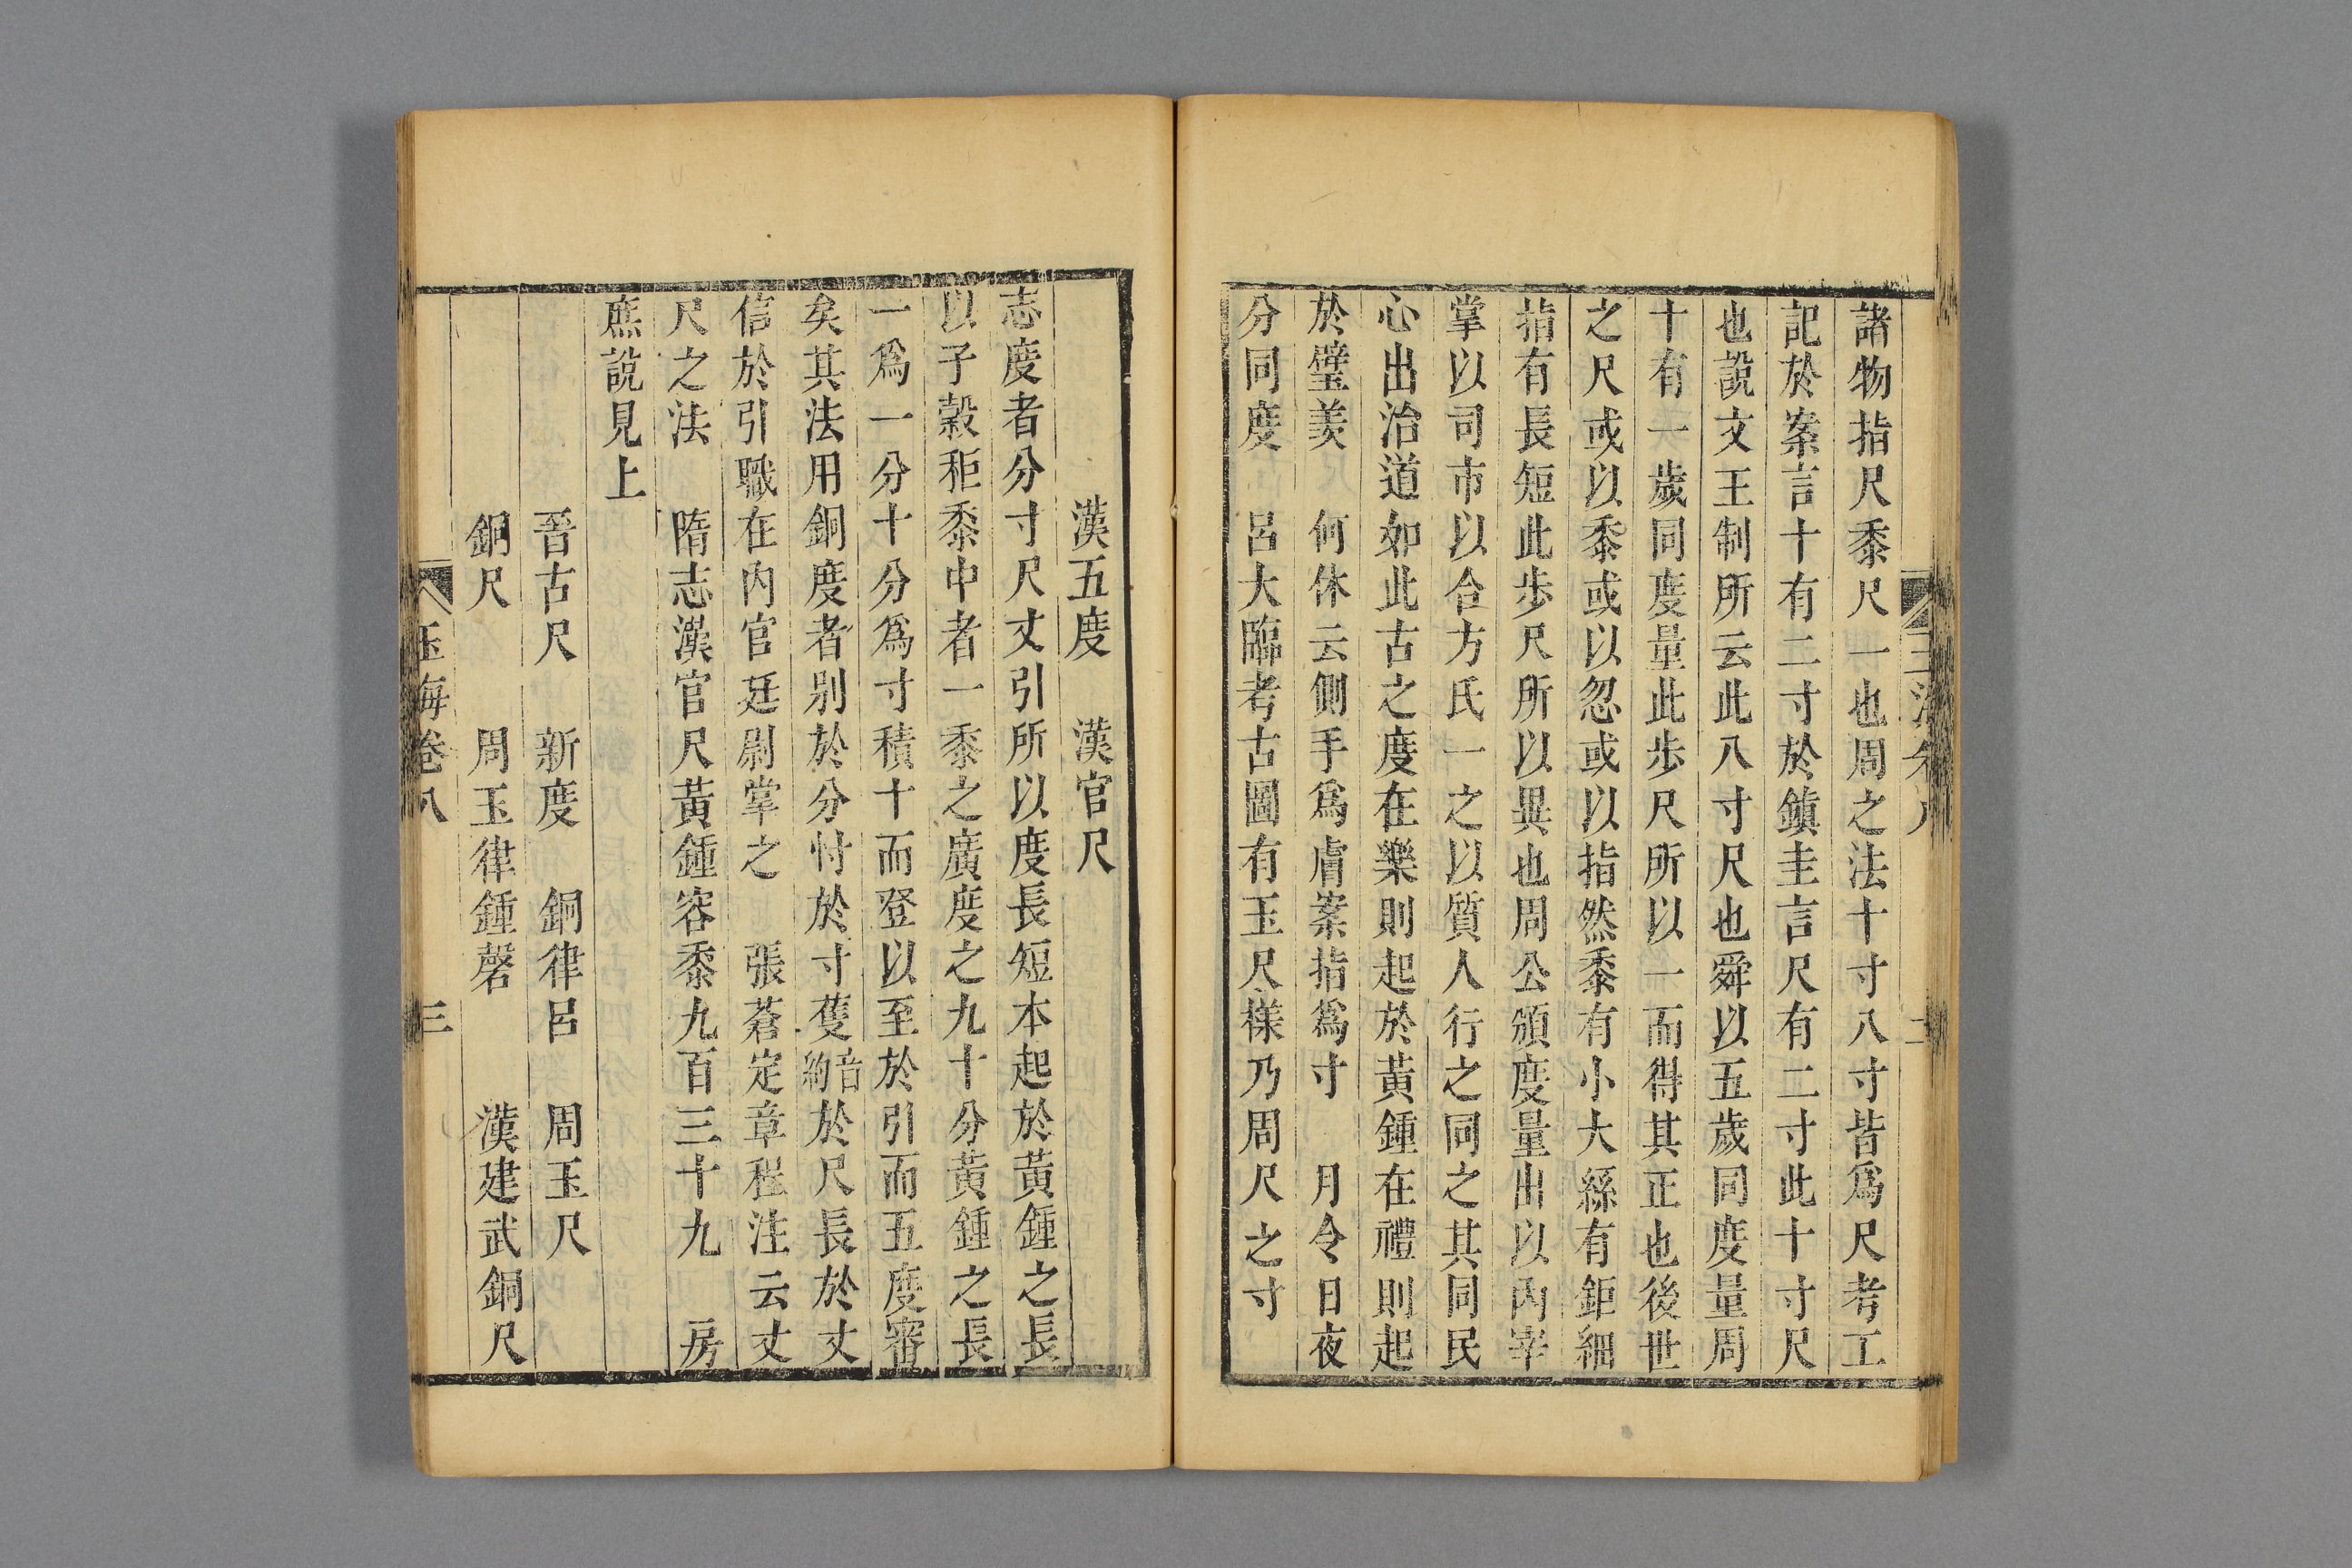 諸物指尺黍尺一也周之法十寸八寸皆爲尺考工
記於案言十有二寸於鎮圭言尺有二寸此十寸尺
也說文王制所云此八寸尺也舜以五歲同度量周
十有一歲同度量此步尺所以一而得其正也後世
之尺或以黍或以忽或以指然黍有小大絲有鉅細
指有長短此步尺所以異也周公頒度量出以內宰
掌以司市以合方氏一之以質人行之同之其同民
心出治道如此古之度在樂則起於黃鍾在禮則起
於璧羨　何休云側手爲膚案指爲寸　月令日夜
分同度　呂大臨考古圖有玉尺樣乃周尺之寸
漢五度　漢官尺
志度者分寸尺丈引所以度長短本起於黃鍾之長
以子穀秬黍中者一黍之廣度之九十分黃鍾之長
一爲一分十分爲寸積十而登以至於引而五度審
矣其法用銅度者別於分忖於寸蒦音約於尺長於丈
信於引職在內官廷尉掌之　張蒼定章程注云丈
尺之法　隋志漢官尺黃鍾容黍九百三十九　房
庶說見上
晉古尺　新度　銅律呂　周玉尺
銅尺　周玉律鍾磬　漢建武銅尺
玉海卷八　三